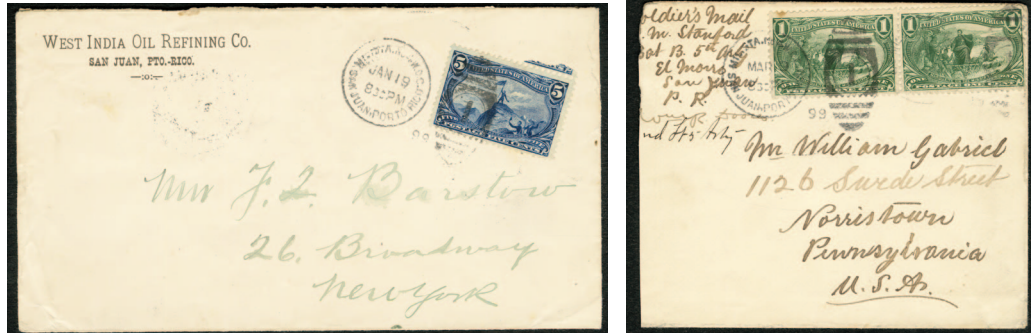 WEST INDIA OIL REFINING CO.
SAN JUAN, PTO.-RICO.
JAN 19
8 30 PM
SAN JUAN-PORTO RICO
99
5 5
UNITED STATES OF AMERICA
POSTAGE FIVE CENTS
Barstow
26. Broadway
New York
oldier's Mail
M. Stanford
Bat B. 5th Arty
El Moro
San Juan
P. R.
MAR
JUAN-PORTO
99
1 1
UNITED STATES OF AMERICA
1 1
UNITED STATES OF AMERICA
nd Lt 5 Arty
Mr William Gabriel
1126 Street
Norristown
Pennsylvania
U.S.A.